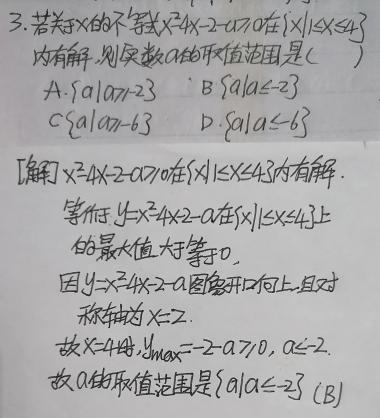 3. 若关于x的不等式x²-4x-2-a≥0在{x|1≤x≤4}
内有解,则实数a的取值范围是( )
A.{a|a≥-2} B{a|a≤-2}
C{a|a≥-6} D.{a|a≤-6}
[解] x²-4x-2-a≥0在{x|1≤x≤4}内有解.
等价于y=x²-4x-2-a在{x|1≤x≤4}上
的最大值大于等于0,
因y=x²-4x-2-a图象开口向上,且对
称轴为x=2.
故x=4时,ymax=-2-a≥0, a≤-2.
故a的取值范围是{a|a≤-2} (B)